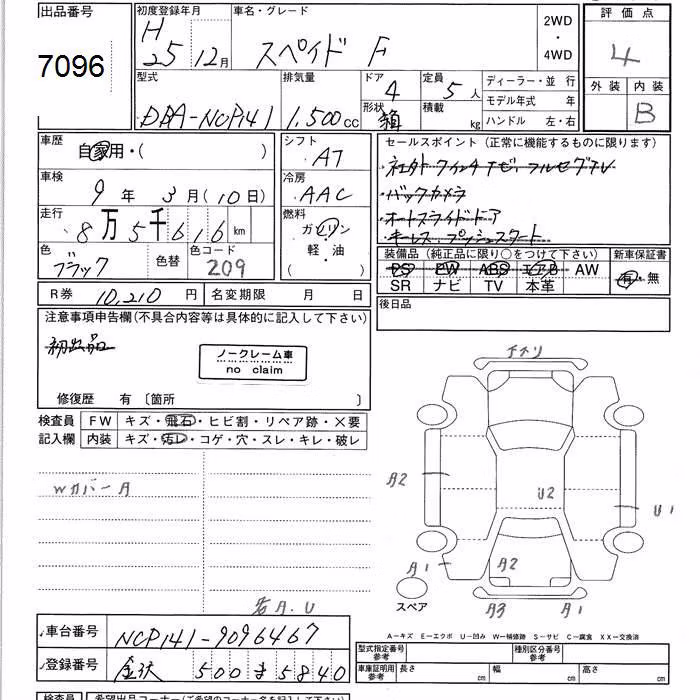 出品番号
7096
初度登録年月
H
25 12月
車名・グレード
スペイド F
2WD
・
4WD
評価点
4
外装 内装
B
型式
DBA-NCP141
排気量
1,500 cc
ドア
4
形状
箱
定員
5 人
積載
kg
ディーラー・並 行
モデル年式 年
ハンドル 左・右
車歴
自家用・( )
車検
9 年 3 月 (10 日)
走行
8万5千616 km
色
ブラック
色替
色コード
209
シフト
AT
冷房
AAC
燃料
ガソリン
軽・油
( )
セールスポイント (正常に機能するものに限ります)
・バックカメラ
・オートスライドドア
・キーレス プッシュスタート
装備品 (純正品に限り○をつけて下さい)
PS PW ABS エアB AW
SR ナビ TV 本革
新車保証書
有・無
R券 10,210 円
名変期限 月 日
後日品
注意事項申告欄(不具合内容等は具体的に記入して下さい)
初出品
ノークレーム車
no claim
修復歴 有 〔箇所 〕
検査員
記入欄
FW キズ・飛石・ヒビ割・リペア跡・×要
内装 キズ・汚レ・コゲ・穴・スレ・キレ・破レ
Wカバー A
若A.U
A2
U2
U1
A1
A2
A3 A1
スペア
A-キズ E-エクボ U-凹み W-補修跡 S-サビ C-腐食 XX-交換済
車台番号
NCP141-9096467
登録番号
金沢 500 ま 5840
型式指定番号
参考
種別区分番号
参考
車庫証明用
参考
長さ cm
幅 cm
高さ cm
検査員
希望出品コーナー(ご希望のコーナー名を記入して下さい)